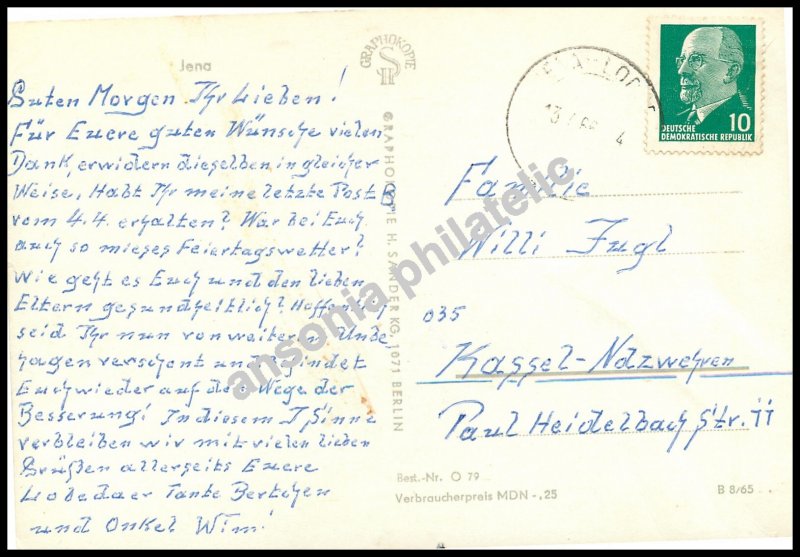 Jena
Guten Morgen Ihr Lieben!
Für Euere guten Wünsche vielen
Dank, erwidern dieselben in gleicher
Weise, Habt Ihr meine letzte Post
vom 4.4. erhalten? War bei Euch
auch so mieses Feiertagswetter?
Wie geht es Euch und den lieben
Eltern gesundheitlich? Hoffentlich
seid Ihr nun von weiterem Unbe-
hagen verschont und befindet
Euch wieder auf dem Wege der
Besserung! In diesem Sinne
verbleiben wir mit vielen lieben
Grüßen allerseits Euere
Lobedaer Tante Bertchen
und Onkel Wim!
GRAPHOKOPIE
GRAPHOKOPIE H. SANDER KG, 1071 BERLIN
10
DEUTSCHE
DEMOKRATISCHE REPUBLIK
Familie
Willi Fugl
035
Kassel-Ndzwehren
Paul Heidelbach Str. 11
Best.-Nr. O 79
Verbraucherpreis MDN -,25
B 8/65
ansonia philatelic